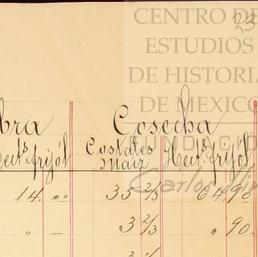 CENTRO DE
ESTUDIOS
DE HISTORIA
DE MEXICO
23
bra Cosecha
Hect.s frijól Costales maiz Hect.s frijól
14. 00 35 2/3 64 90
" — 3 2/3 " 90